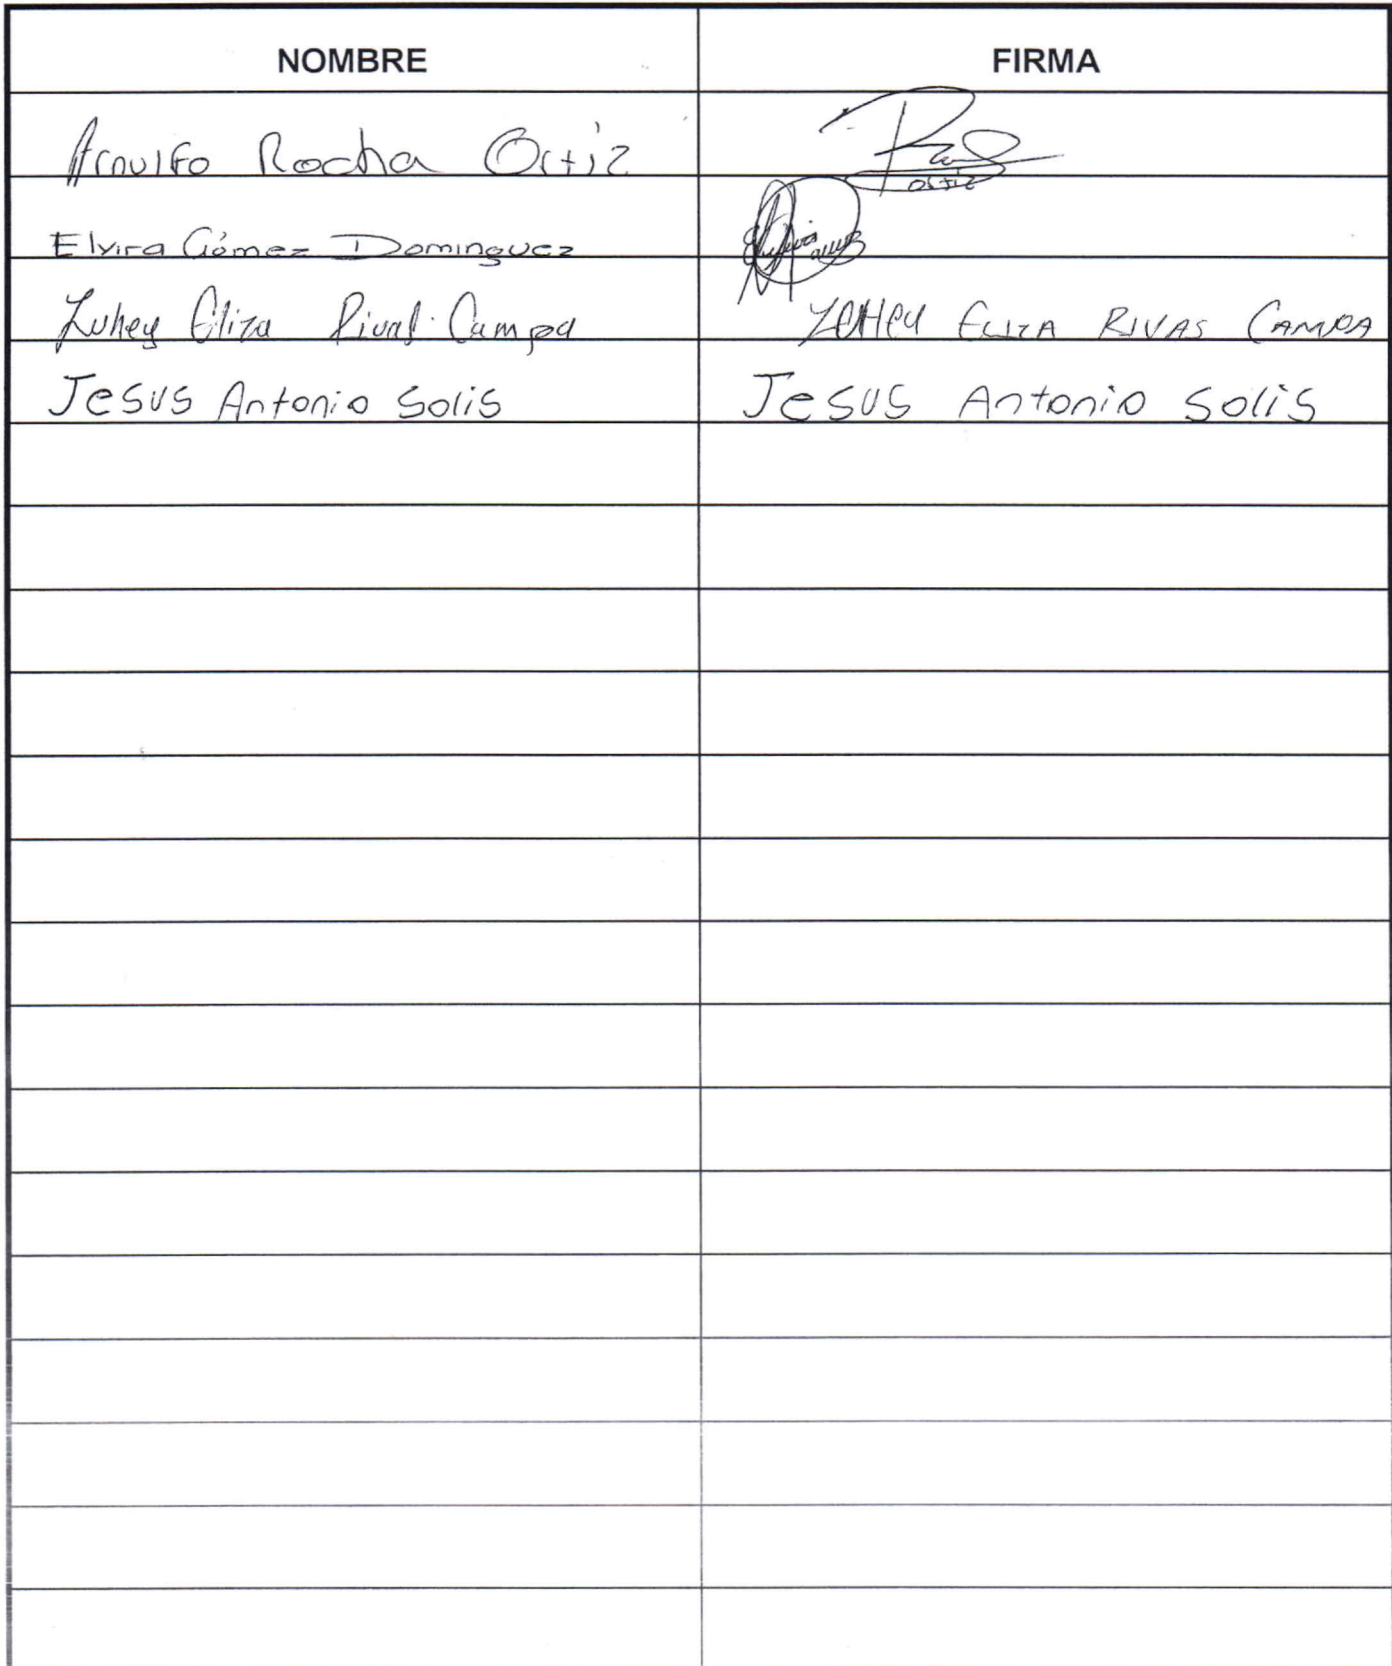 NOMBRE FIRMA
Arnulfo Rocha Ortiz
Ortiz
Elvira Gómez Dominguez
Eliza Rivas Campa ELIZA RIVAS CAMPA
Jesus Antonio Solis Jesus Antonio Solis